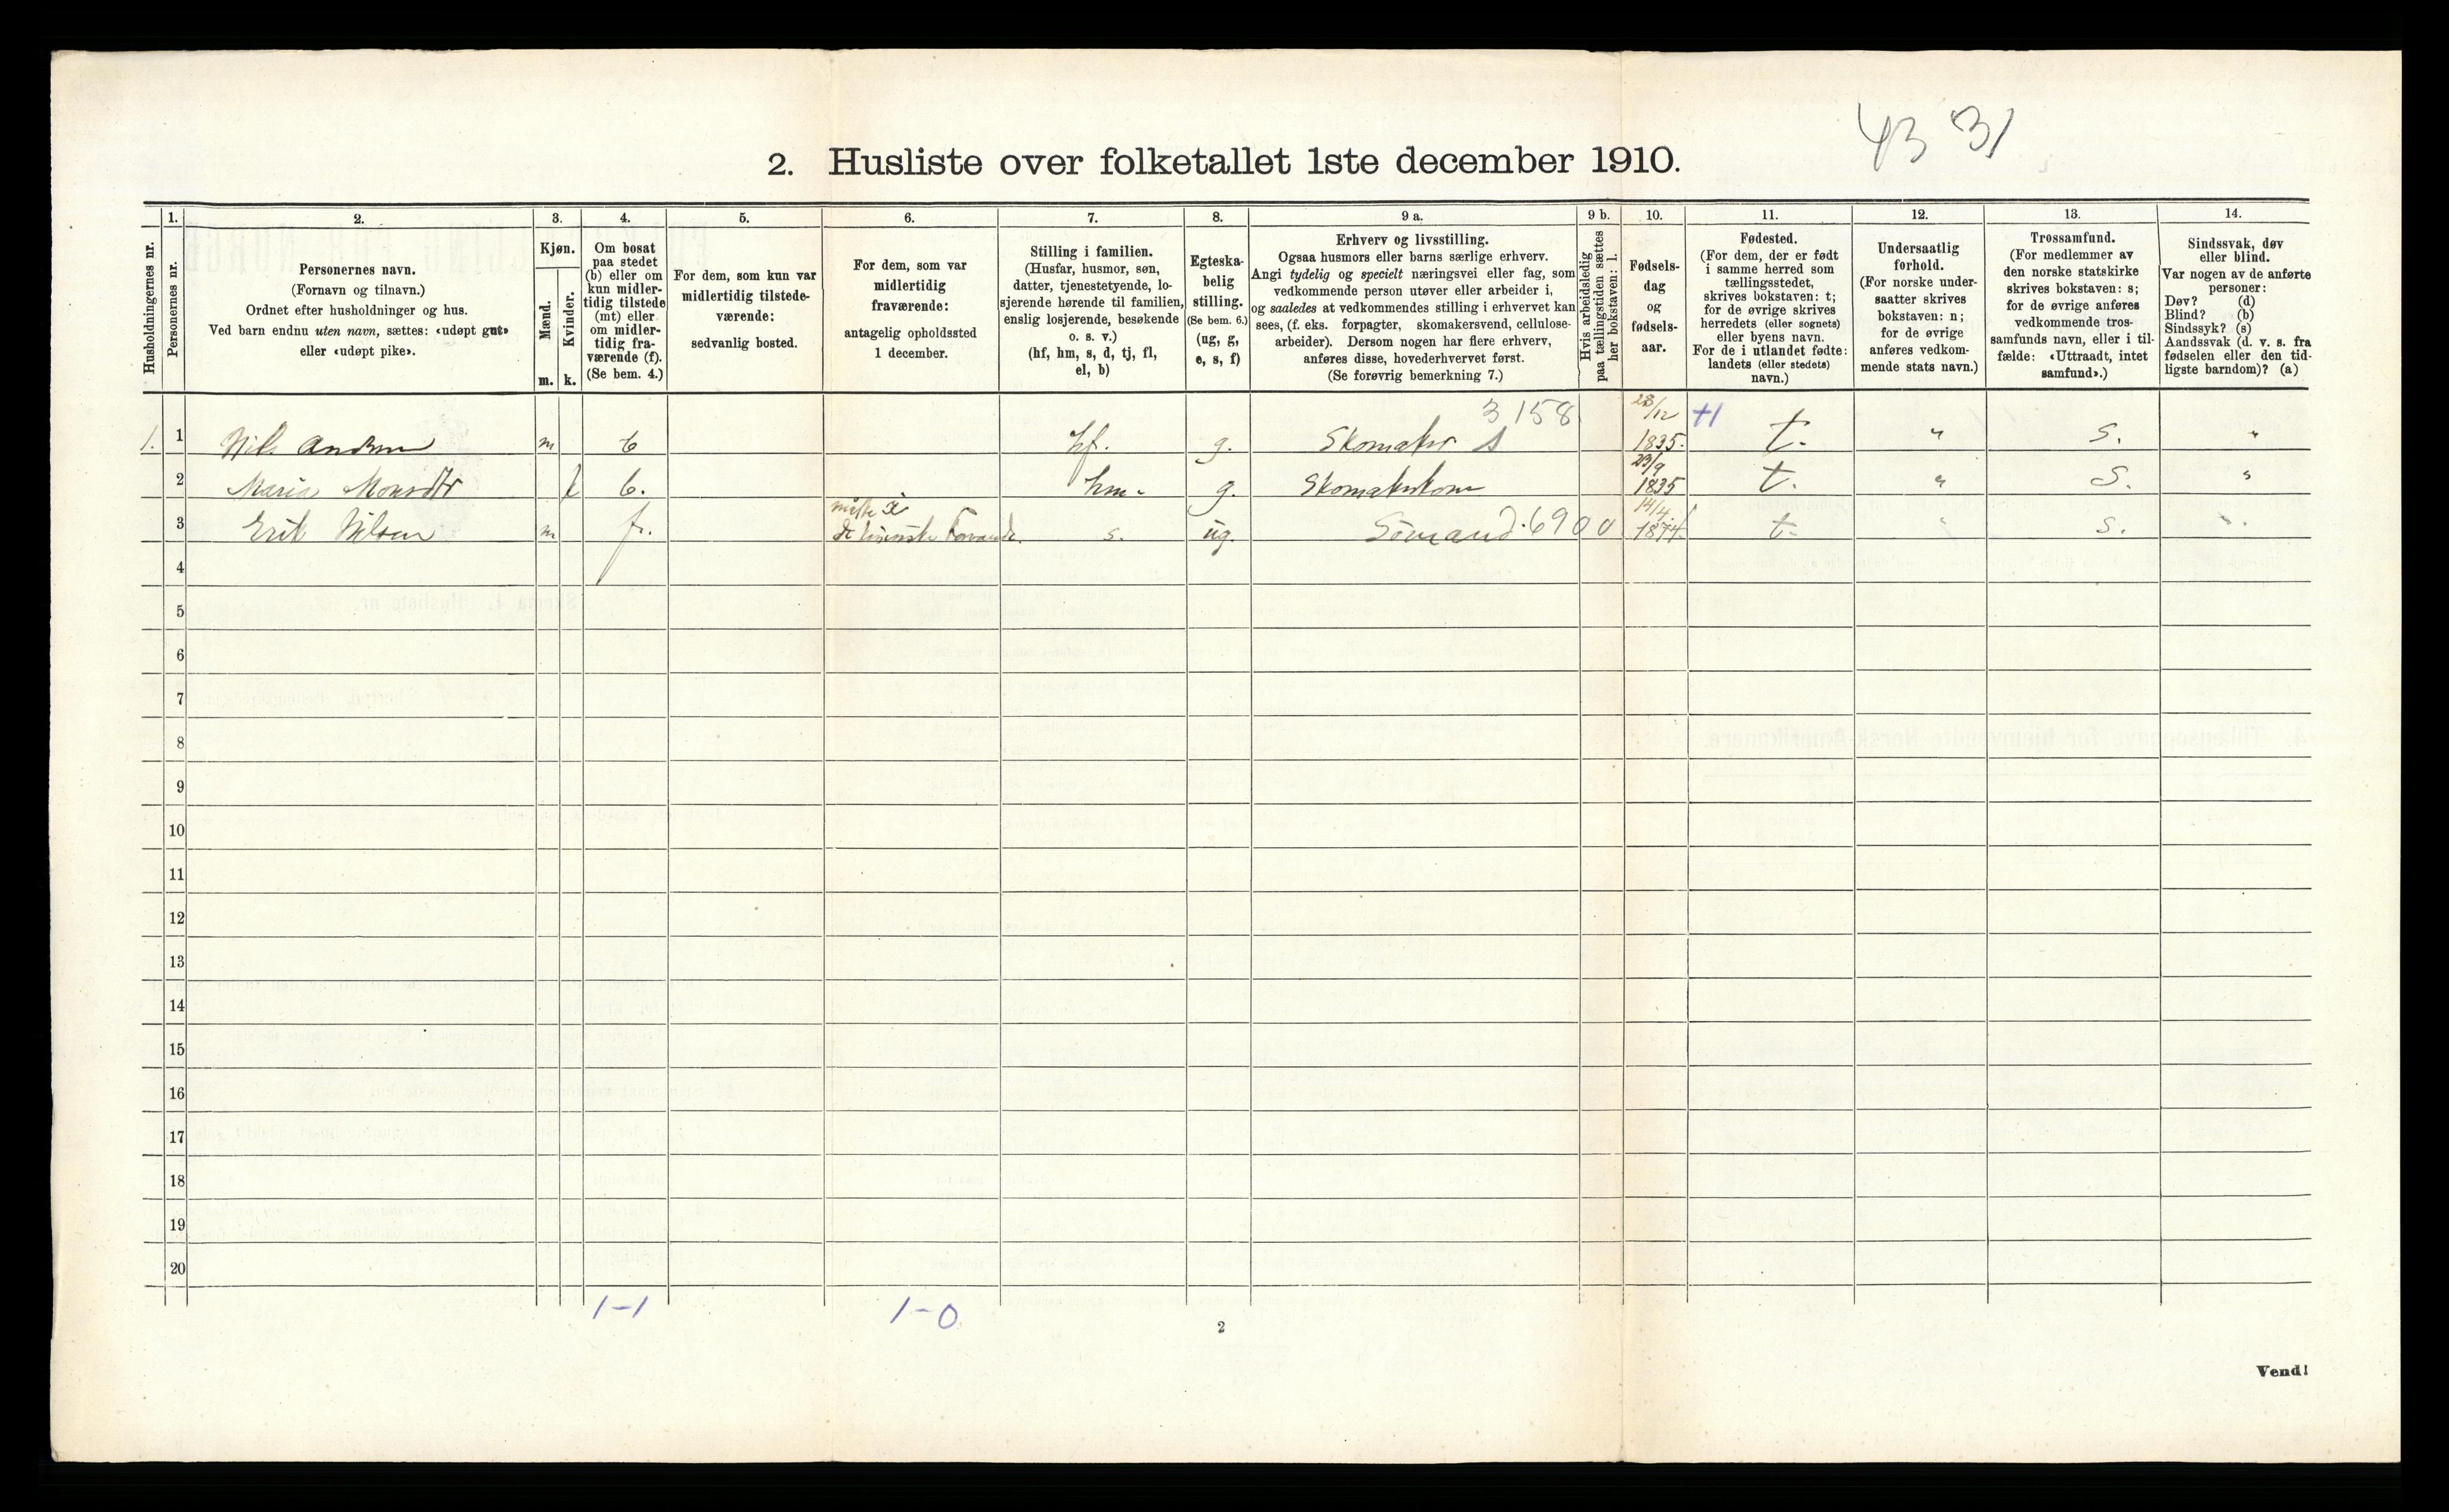 43 31
2. Husliste over folketallet 1ste december 1910.
1. 2. 3. 4. 5. 6. 7. 8. 9 a. 9 b. 10. 11. 12. 13. 14.
Husholdningernes nr.
Personernes nr.
Personernes navn.
(Fornavn og tilnavn.)
Ordnet efter husholdninger og hus.
Ved barn endnu uten navn, sættes: «udøpt gut»
eller «udøpt pike».
Kjøn.
Mænd.
Kvinder.
m. k.
Om bosat
paa stedet
(b) eller om
kun midler-
tidig tilstede
(mt) eller
om midler-
tidig fra-
værende (f).
(Se bem. 4.)
For dem, som kun var
midlertidig tilstede-
værende:
sedvanlig bosted.
For dem, som var
midlertidig
fraværende:
antagelig opholdssted
1 december.
Stilling i familien.
(Husfar, husmor, søn,
datter, tjenestetyende, lo-
sjerende hørende til familien,
enslig losjerende, besøkende
o. s. v.)
(hf, hm, s, d, tj, fl,
el, b)
Egteska-
belig
stilling.
(Se bem. 6.)
(ug, g,
e, s, f)
Erhverv og livsstilling.
Ogsaa husmors eller barns særlige erhverv.
Angi tydelig og specielt næringsvei eller fag, som
vedkommende person utøver eller arbeider i,
og saaledes at vedkommendes stilling i erhvervet kan
sees, (f. eks. forpagter, skomakersvend, cellulose-
arbeider). Dersom nogen har flere erhverv,
anføres disse, hovederhvervet først.
(Se forøvrig bemerkning 7.)
Hvis arbeidsledig
paa tællingstiden sættes
her bokstaven: l.
Fødsels-
dag
og
fødsels-
aar.
Fødested.
(For dem, der er født
i samme herred som
tællingsstedet,
skrives bokstaven: t;
for de øvrige skrives
herredets (eller sognets)
eller byens navn.
For de i utlandet fødte:
landets (eller stedets)
navn.)
Undersaatlig
forhold.
(For norske under-
saatter skrives
bokstaven: n;
for de øvrige
anføres vedkom-
mende stats navn.)
Trossamfund.
(For medlemmer av
den norske statskirke
skrives bokstaven: s;
for de øvrige anføres
vedkommende tros-
samfunds navn, eller i til-
fælde: «Uttraadt, intet
samfund».)
Sindssvak, døv
eller blind.
Var nogen av de anførte
personer:
Døv? (d)
Blind? (b)
Sindssyk? (s)
Aandssvak (d. v. s. fra
fødselen eller den tid-
ligste barndom)? (a)
3158 28/12 +1
1. 1 Nils Andersen m b hf. g. Skomaker s 1835. t. " s. "
23/9
2 Maria Monsdtr k b. hm. g. Skomakerkone 1835 t. " s. "
14/4
3 Erik Nilsen m f. s. ug. Sømand. 6900 1874. t. " s. "
4
5
6
7
8
9
10
11
12
13
14
15
16
17
18
19
20
1-1 1-0
2
Vend!